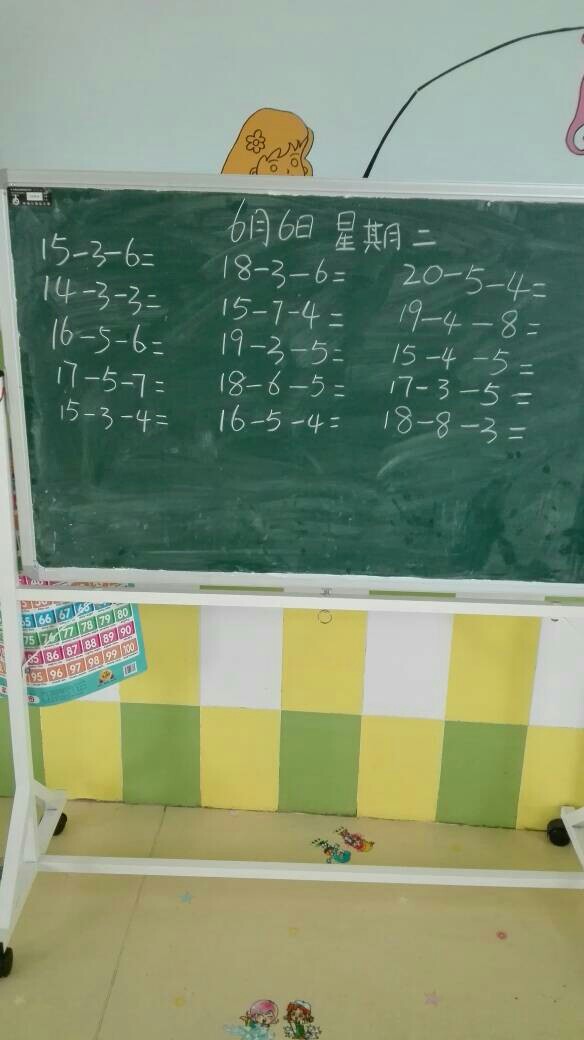 6月6日 星期二
15-3-6=
14-3-3=
16-5-6=
17-5-7=
15-3-4=
18-3-6=
15-7-4=
19-3-5=
18-6-5=
16-5-4=
20-5-4=
19-4-8=
15-4-5=
17-3-5=
18-8-3=
65 66 67 68
75 76 77 78 79 80
85 86 87 88 89 90
95 96 97 98 99 100